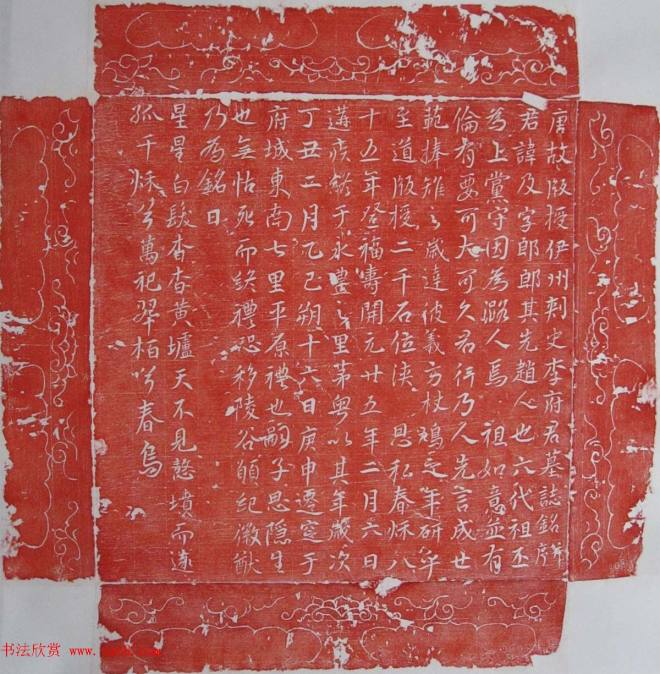 唐故版授伊州刺史李府君墓誌銘并序
君諱及字郎郎其先趙人也六代祖丕
為上黨守因為潞人焉 祖如意並有
倫有要可大可久君行乃人先言成世
範捧雉之歲達彼義方杖鳩之年研年
至道版授二千石位浹 恩私春秋八
十五年登福壽開元廿五年二月六日
遘疾終于永豊之里第粵以其年歲次
丁丑二月乙巳朔十六日庚申遷窆于
府城東南七里平原禮也嗣子思隱生
也無怙死而終禮恐移陵谷頌紀徽猷
乃為銘曰
星星白髮杳杳黃壚天不見憖墳而遠
孤千秋兮萬祀翠柏兮春烏
书法欣赏